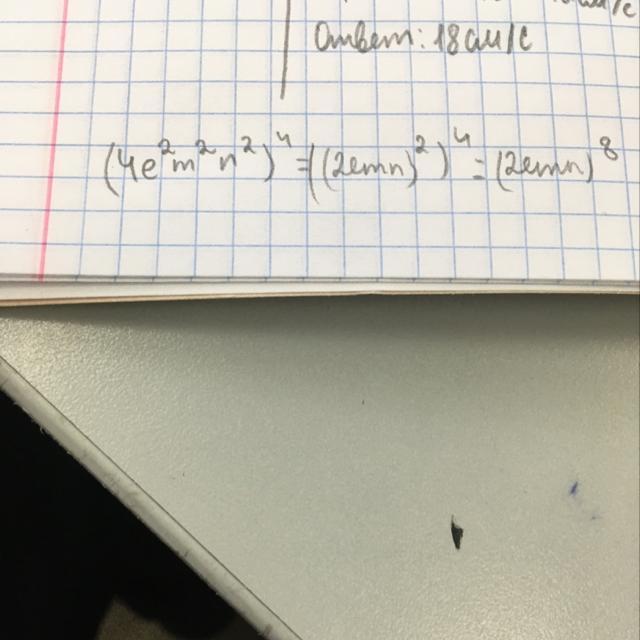 Ответ: 18 см/с
(4e²m²n²)⁴=((2emn)²)⁴=(2emn)⁸